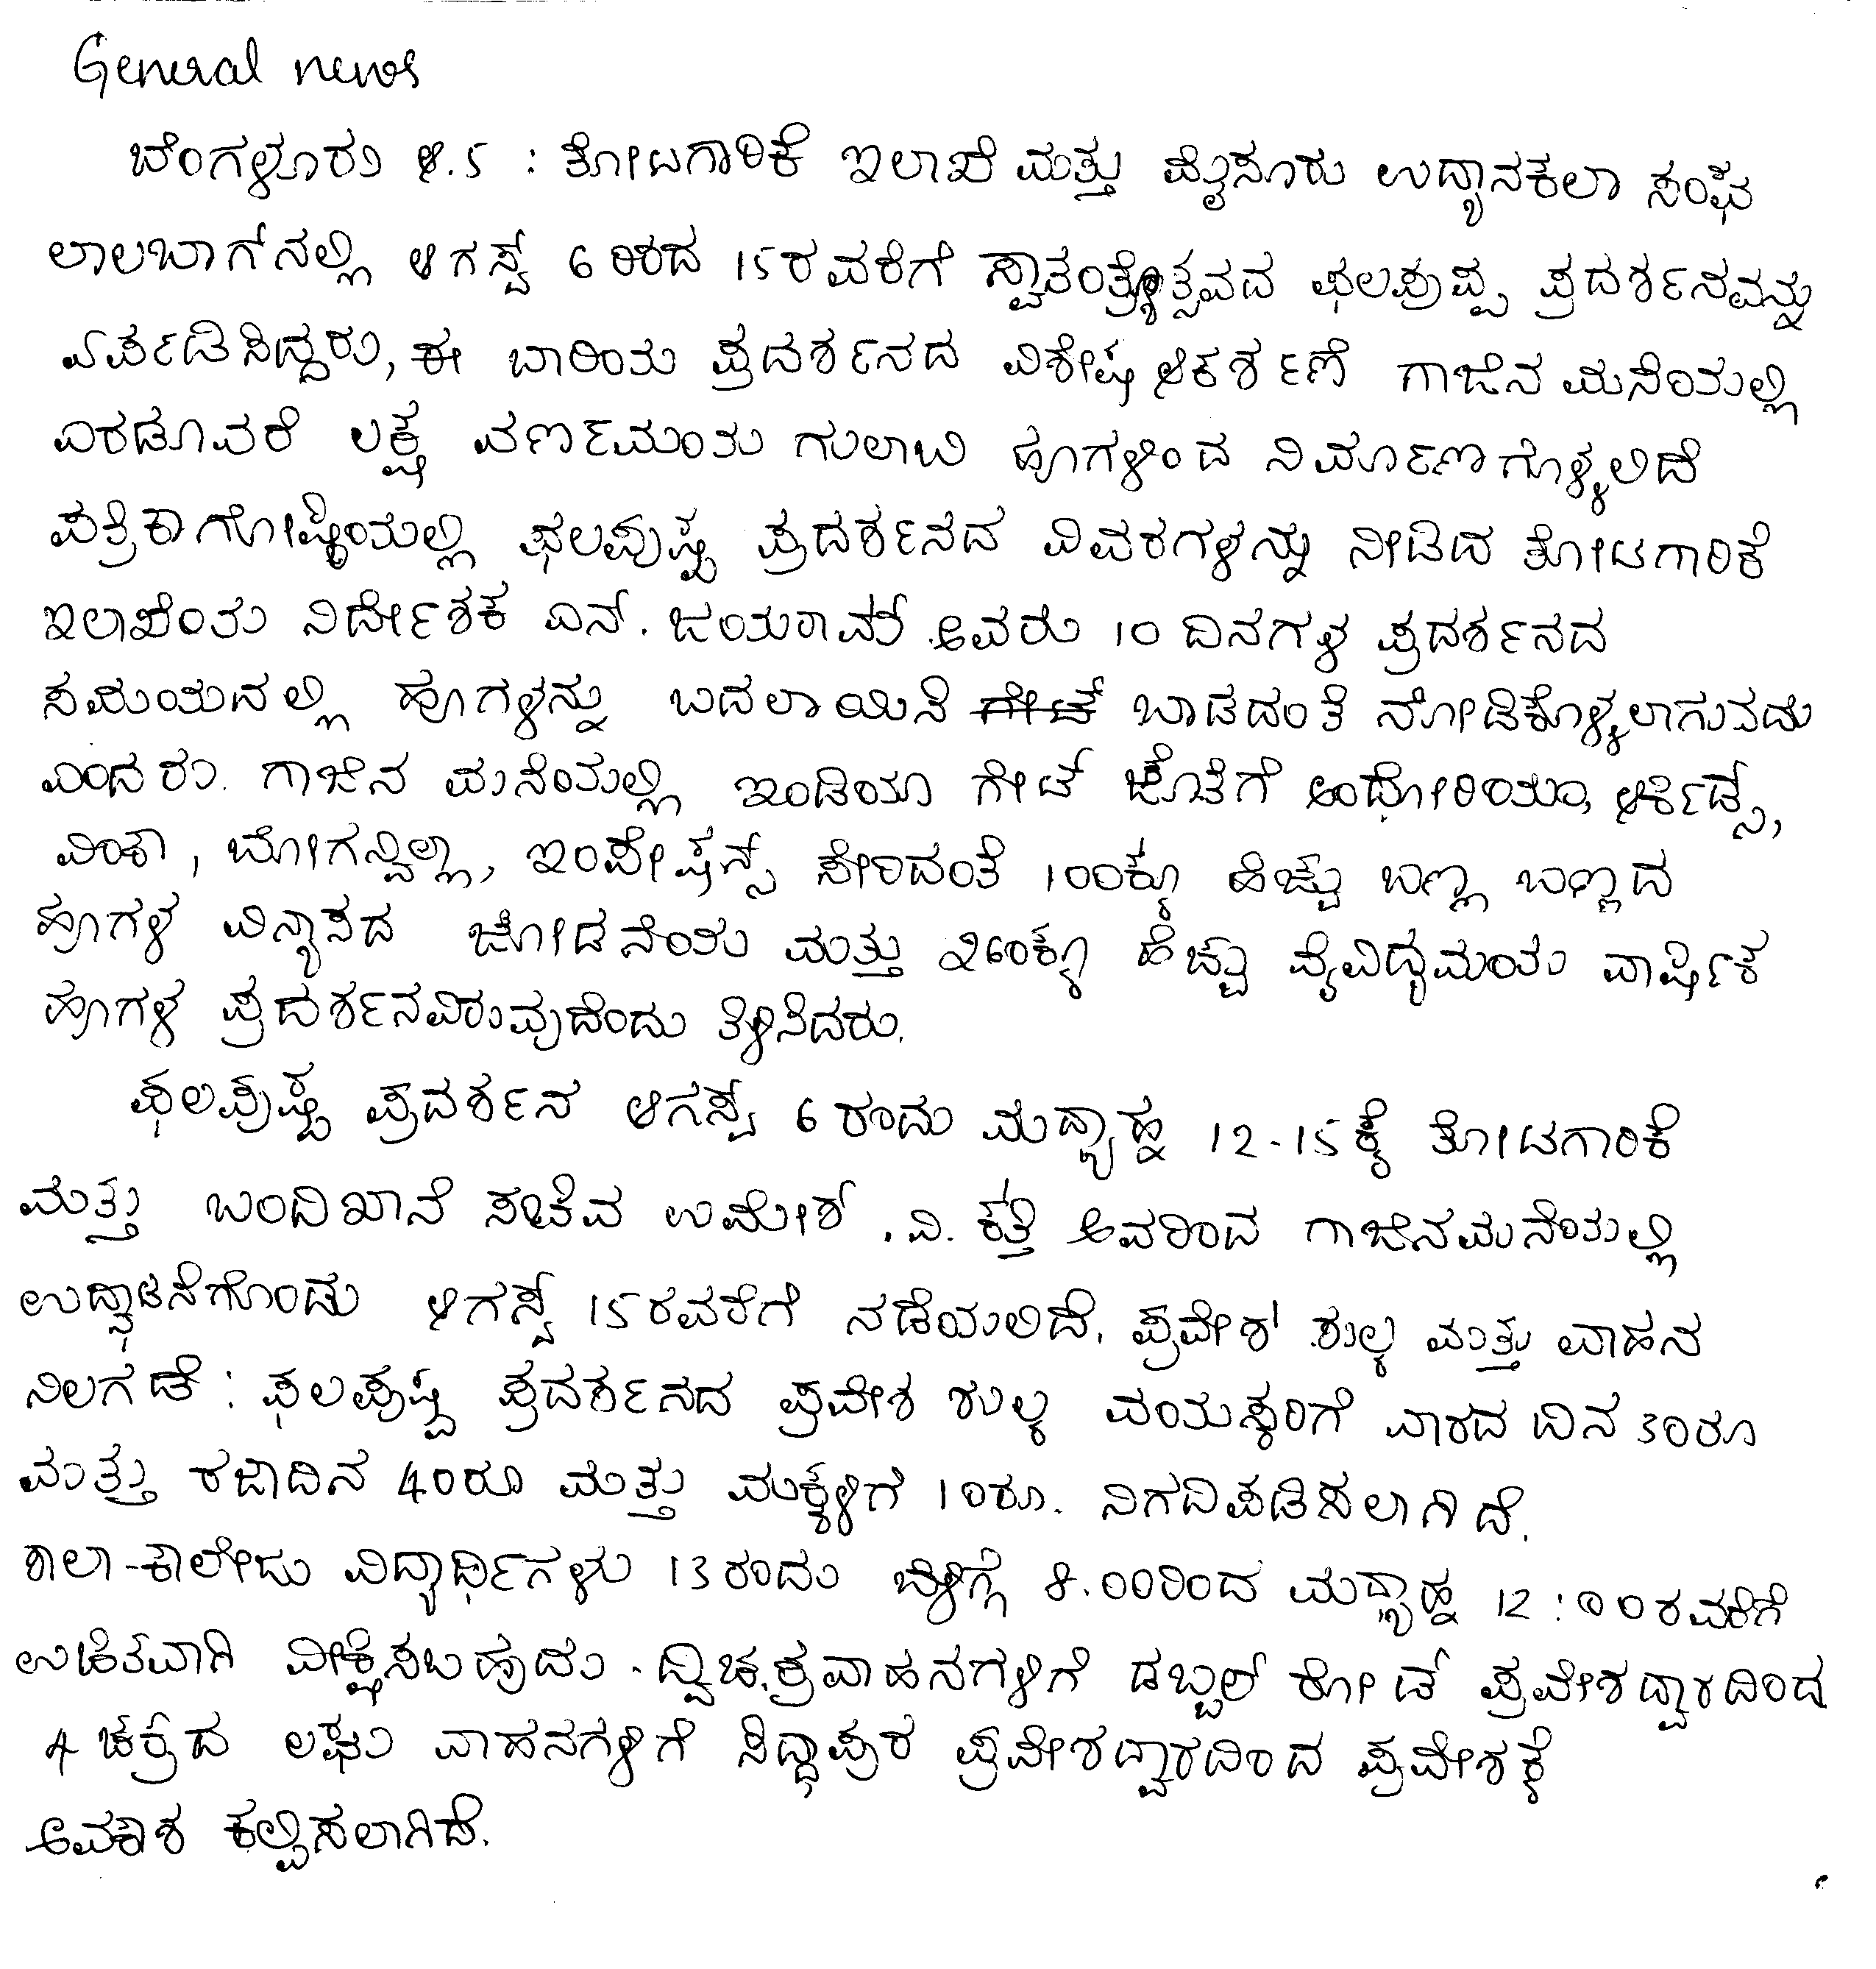 General news
ಬೆಂಗಳೂರು ಆ.5 : ತೋಟಗಾರಿಕೆ ಇಲಾಖೆ ಮತ್ತು ಮೈಸೂರು ಉದ್ಯಾನಕಲಾ ಸಂಘ
ಲಾಲಬಾಗ್‌ನಲ್ಲಿ ಆಗಸ್ಟ್ 6 ರಿಂದ 15ರವರೆಗೆ ಸ್ವಾತಂತ್ರ್ಯೋತ್ಸವದ ಫಲಪುಷ್ಪ ಪ್ರದರ್ಶನವನ್ನು
ಏರ್ಪಡಿಸಿದ್ದರು, ಈ ಬಾರಿಯ ಪ್ರದರ್ಶನದ ವಿಶೇಷ ಆಕರ್ಶಣೆ ಗಾಜಿನ ಮನೆಯಲ್ಲಿ
ಎರಡೂವರೆ ಲಕ್ಷ ವರ್ಣಮಯ ಗುಲಾಬಿ ಹೂಗಳಿಂದ ನಿರ್ಮಾಣಗೊಳ್ಳಲಿದೆ
ಪತ್ರಿಕಾಗೋಷ್ಠಿಯಲ್ಲಿ ಫಲಪುಷ್ಪ ಪ್ರದರ್ಶನದ ವಿವರಗಳನ್ನು ನೀಡಿದ ತೋಟಗಾರಿಕೆ
ಇಲಾಖೆಯ ನಿರ್ದೇಶಕ ಎನ್. ಜಯರಾಮ್ ಅವರು 10 ದಿನಗಳ ಪ್ರದರ್ಶನದ
ಸಮಯದಲ್ಲಿ ಹೂಗಳನ್ನು ಬದಲಾಯಿಸಿ ಬಾಡದಂತೆ ನೋಡಿಕೊಳ್ಳಲಾಗುವದು
ಎಂದರು. ಗಾಜಿನ ಮನೆಯಲ್ಲಿ ಇಂಡಿಯಾ ಗೇಟ್ ಜೊತೆಗೆ ಅಂಥೋರಿಯಂ, ಆರ್ಕಿಡ್ಸ್,
ವಿಂಕಾ, ಬೋಗನ್ವಿಲ್ಲಾ, ಇಂಪೇಷನ್ಸ್ ಸೇರಿದಂತೆ 100ಕ್ಕೂ ಹೆಚ್ಚು ಬಣ್ಣ ಬಣ್ಣದ
ಹೂಗಳ ವಿನ್ಯಾಸದ ಜೋಡನೆಯ ಮತ್ತು 260ಕ್ಕೂ ಹೆಚ್ಚು ವೈವಿಧ್ಯಮಯ ವಾರ್ಷಿಕ
ಹೂಗಳ ಪ್ರದರ್ಶನವಿರುವುದೆಂದು ತಿಳಿಸಿದರು.
ಫಲಪುಷ್ಪ ಪ್ರದರ್ಶನ ಆಗಸ್ಟ್ 6 ರಂದು ಮಧ್ಯಾಹ್ನ 12-15ಕ್ಕೆ ತೋಟಗಾರಿಕೆ
ಮತ್ತು ಬಂದಿಖಾನೆ ಸಚಿವ ಉಮೇಶ್ . ವಿ. ಕತ್ತಿ ಅವರಿಂದ ಗಾಜಿನಮನೆಯಲ್ಲಿ
ಉದ್ಘಾಟನೆಗೊಂಡು ಆಗಸ್ಟ್ 15ರವರೆಗೆ ನಡೆಯಲಿದೆ. ಪ್ರವೇಶ ಶುಲ್ಕ ಮತ್ತು ವಾಹನ
ನಿಲಗಡೆ : ಫಲಪುಷ್ಪ ಪ್ರದರ್ಶನದ ಪ್ರವೇಶ ಶುಲ್ಕ ವಯಸ್ಕರಿಗೆ ವಾರದ ದಿನ 30ರೂ
ಮತ್ತು ರಜಾದಿನ 40ರೂ ಮತ್ತು ಮಕ್ಕಳಿಗೆ 10ರೂ. ನಿಗದಿಪಡಿಸಲಾಗಿದೆ.
ಶಾಲಾ-ಕಾಲೇಜು ವಿದ್ಯಾರ್ಥಿಗಳು 13ರಂದು ಬೆಳಿಗ್ಗೆ 8.00ರಿಂದ ಮಧ್ಯಾಹ್ನ 12:00ರವರೆಗೆ
ಉಚಿತವಾಗಿ ವೀಕ್ಷಿಸಬಹುದು. ದ್ವಿಚಕ್ರವಾಹನಗಳಿಗೆ ಡಬ್ಬಲ್ ರೋಡ್ ಪ್ರವೇಶದ್ವಾರದಿಂದ
4 ಚಕ್ರದ ಲಘು ವಾಹನಗಳಿಗೆ ಸಿದ್ಧಾಪುರ ಪ್ರವೇಶದ್ವಾರದಿಂದ ಪ್ರವೇಶಕ್ಕೆ
ಅವಕಾಶ ಕಲ್ಪಿಸಲಾಗಿದೆ.